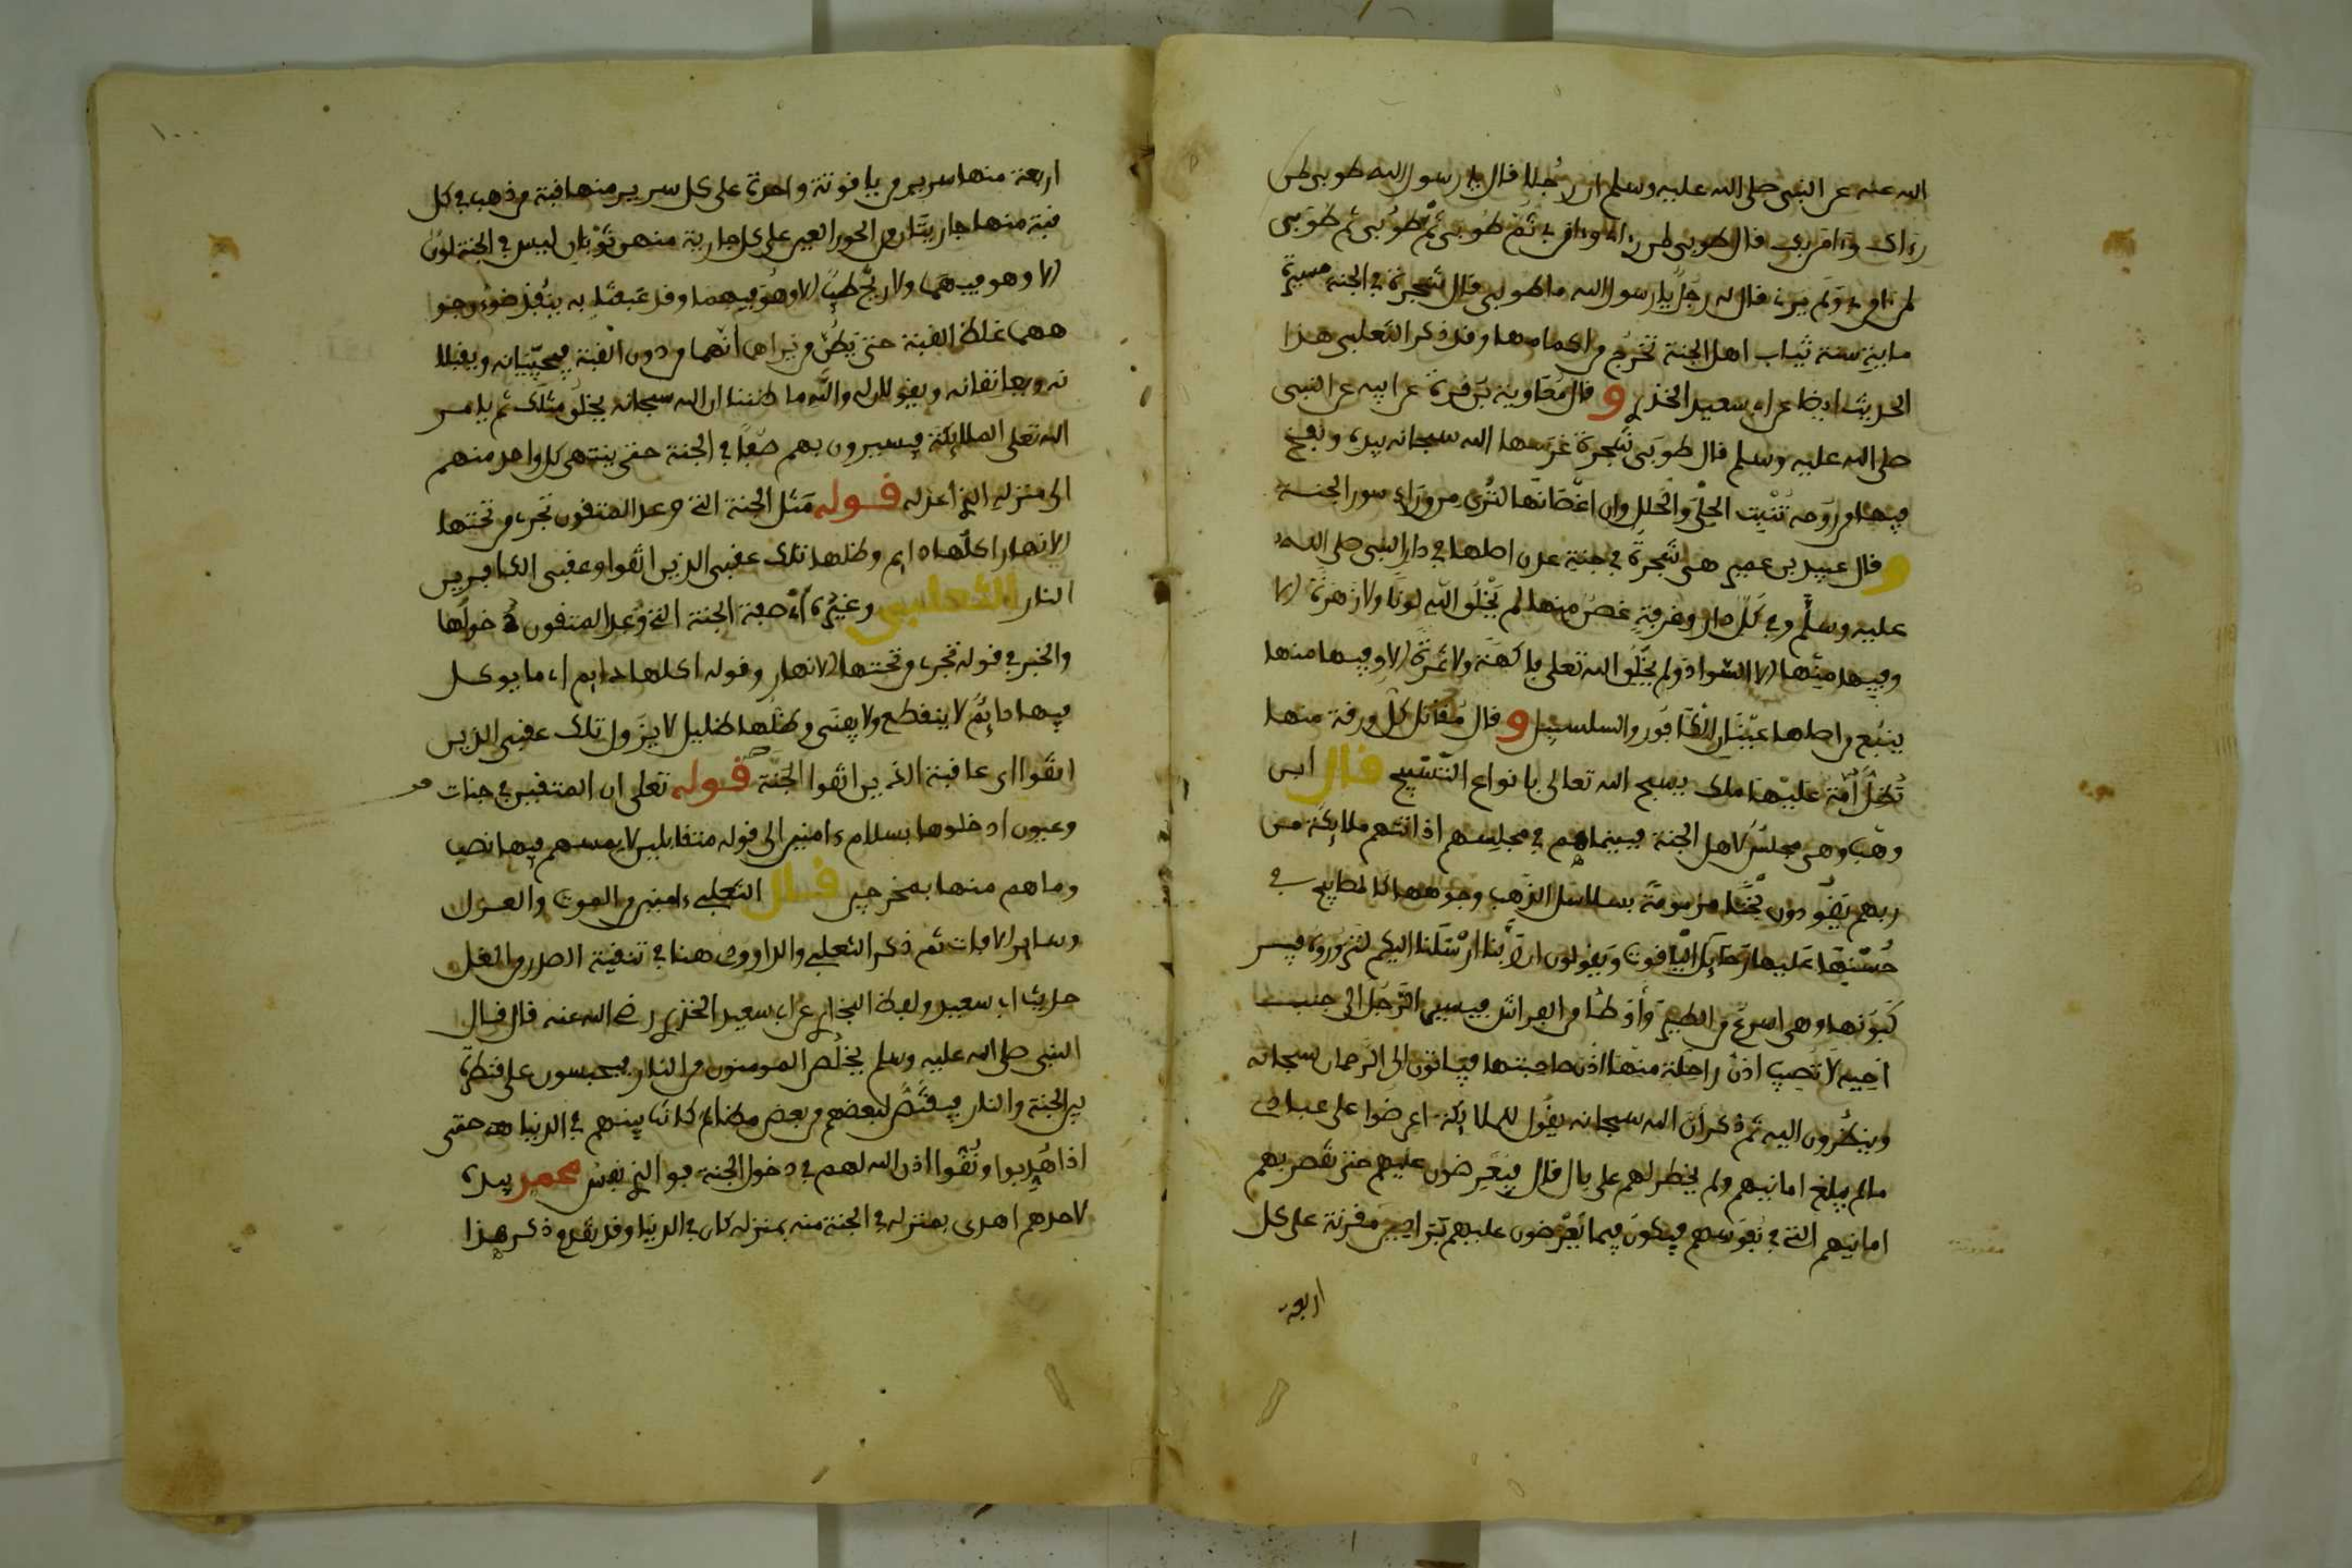 الله عنه عن النبي صلى الله عليه وسلم ان رجلا قال يا رسول الله طوبى لمن
رءاك وءامن بك قال طوبى لمن رءاني وءامن بي ثم طوبى ثم طوبى ثم طوبى
لمن ءامن بي ولم يرني فقال له رجل يا رسول الله ما طوبى قال شجرة في الجنة مسيرة
ماية سنة ثياب اهل الجنة تخرج من اكمامها وقد ذكر الثعلبي هذا
الحديث ايضا عن ابي سعيد الخذري و قال معاوية بن قرة عن ابيه عن النبي
صلى الله عليه وسلم قال طوبى شجرة غرسها الله سبحانه بيده ونفخ
فيها من روحه تنبت الحلي والحلل وان اغصانها لترى من وراء سور الجنة
و قال عبيد بن عمير هي شجرة في جنة عدن اصلها في دار النبي صلى الله
عليه وسلم وفي كل دار وغرفة غصن منها لم يخلق الله لونا ولا زهرة الا
وفيها منها الا السواد ولم يخلق الله تعلى فاكهة ولا ثمرة الا وفيها منها
ينبع من اصلها عينان الكافور والسلسبيل و قال مقاتل كل ورقة منها
تظل امة عليها ملك يسبح الله تعالى بانواع التسبيح قال ابن
وهب وهي مجلس لاهل الجنة فبينما هم في مجلسهم اذ اتتهم ملايكة من
ربهم يقودون نجبا مزمومة بسلاسل الذهب وجوهها كالمصابيح في
حسنها عليها رحايل الياقوت ويقولون ان ربنا ارسلنا اليكم لتزوروه فيسر
كبونها وهي اسرع من الطير وأوطأ من الفراش فيسير الرجل الى جنب
اخيه لا تصيب اذن راحلة منها اذن صاحبتها فياتون الى الرحمان سبحانه
وينظرون اليه ثم ذكر ان الله سبحانه يقول للملايكة اعرضوا على عبادي
ما لم يبلغ امانيهم ولم يخطر لهم على بال قال فيعرضون عليهم حتى تقصر بهم
امانيهم التي في نفوسهم فيكون فيما يعرضون عليهم براذين مقرنة على كل
اربعة
اربعة منها سرير من ياقوتة واحدة على كل سرير منها قبة من ذهب في كل
قبة منها جاريتان من الحور العين على كل جارية منهن ثوبان ليس في الجنة لون
الا وهو فيهما ولا ريح طيب الا وهو فيهما وقد عبقتا به ينفذ ضوء وجو
ههما غلظ القبة حتى يظن من يراهما انهما من دون القبة فيحييانه ويقبلا
نه ويعانقانه ويقولان له والله ما ظننا ان الله سبحانه يخلق مثلك ثم يامر
الله تعلى الملايكة فيسيرون بهم صفا في الجنة حتى ينتهي كل واحد منهم
الى منزله الذي اعد له قوله مثل الجنة التي وعد المتقون تجري من تحتها
الانهار اكلها دايم وظلها تلك عقبى الذين اتقوا وعقبى الكافرين
النار الثعلبي وغيره أي صفة الجنة التي وعد المتقون دخولها
والخبر في قوله تجري من تحتها الانهار وقوله اكلها دايم اي ما يوكل
فيها دايم لا ينقطع ولا يفنى وظلها ظليل لا يزول تلك عقبى الذين
اتقوا اي عاقبة الذين اتقوا الجنة قوله تعلى ان المتقين في جنات
وعيون ادخلوها بسلام ءامنين الى قوله متقابلين لا يمسهم فيها نصب
وما هم منها بمخرجين قال الثعلبي ءامنين من الموت والعزل
وساير الافات ثم ذكر الثعلبي والداوودي هنا في تنقية الصدر من الغل
حديث ابي سعيد ولفظ البخاري عن ابي سعيد الخذري رضي الله عنه قال قال
النبي صلى الله عليه وسلم يخلص المومنون من النار فيحبسون على قنطرة
بين الجنة والنار فيقتص لبعضهم من بعض مظالم كانت بينهم في الدنيا حتى
اذا هذبوا ونقوا اذن الله لهم في دخول الجنة فو الذي نفس محمد بيده
لاحدهم اهدى بمنزله في الجنة منه بمنزله كان في الدنيا وقد تقدم ذكر هذا